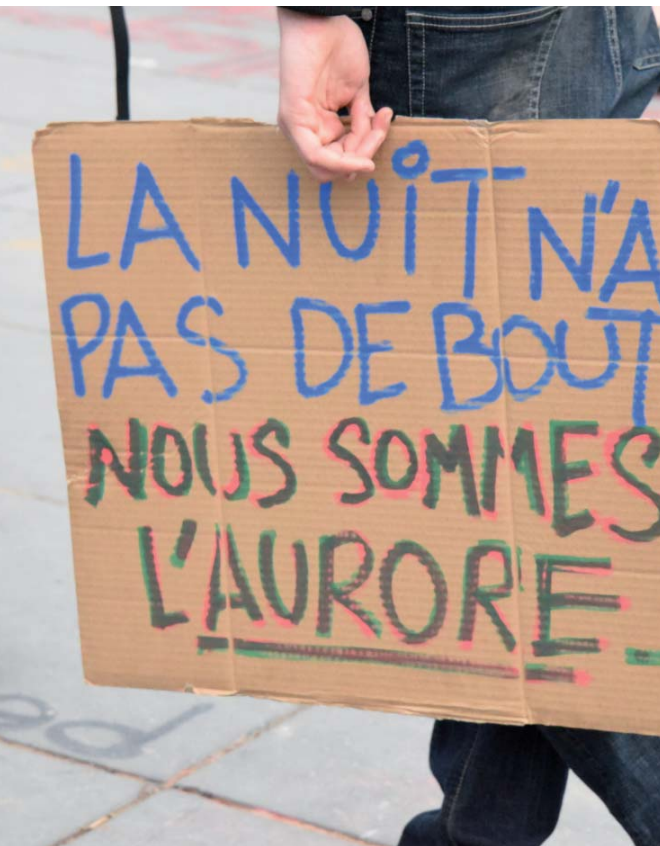 LA NUIT N'A
PAS DE BOUT
NOUS SOMMES
L'AURORE